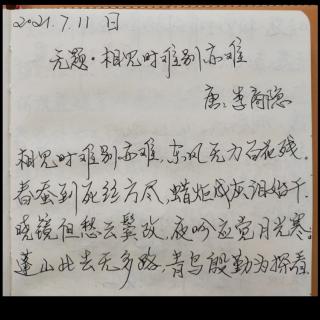 2021.7.11日
无题·相见时难别亦难
唐:李商隐
相见时难别亦难,东风无力百花残.
春蚕到死丝方尽,蜡炬成灰泪始干.
晓镜但愁云鬓改,夜吟应觉月光寒.
蓬山此去无多路,青鸟殷勤为探看.